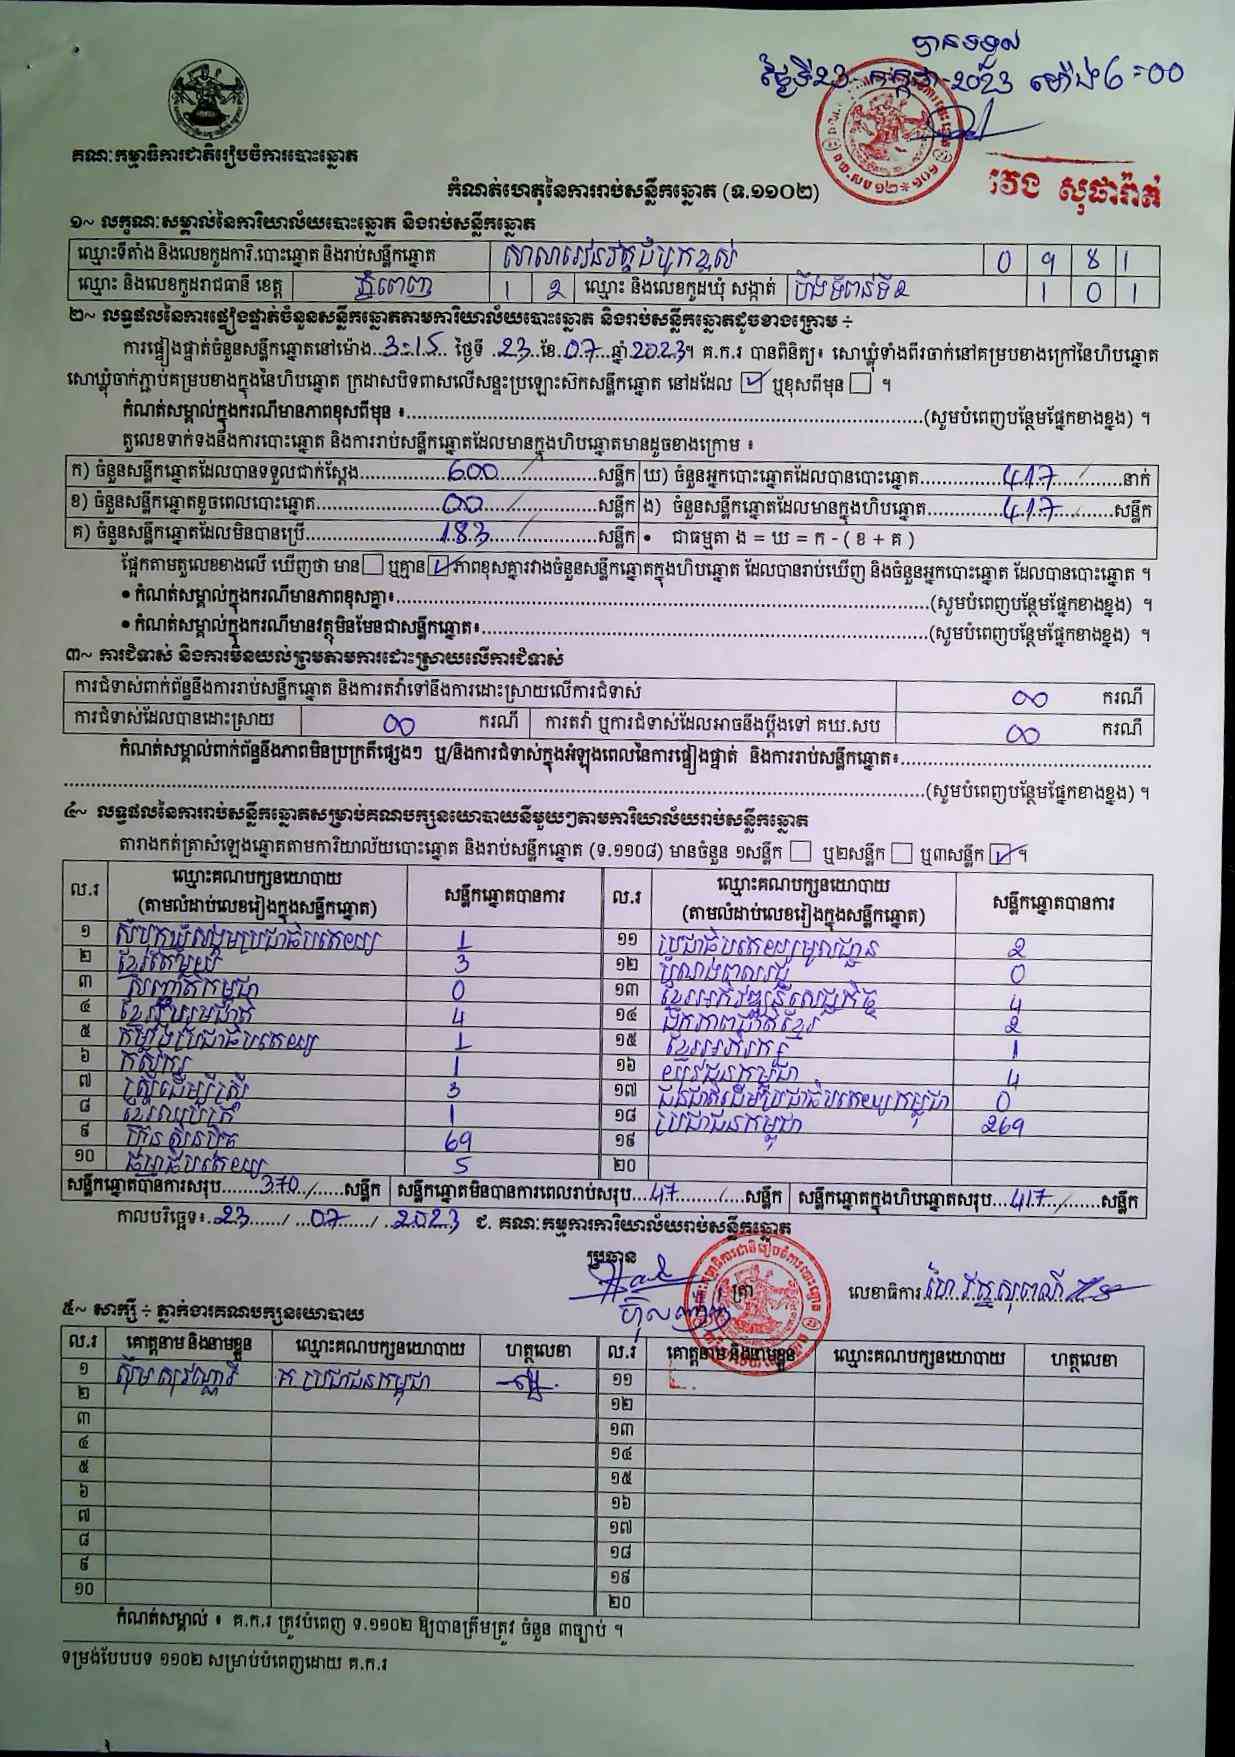 បានទទួល
ថ្ងៃទី23 កក្កដា 2023 ម៉ោង 6=00
គណៈកម្មាធិការជាតិរៀបចំការបោះឆ្នោត
វេង សុផារ៉ាត់
កំណត់ហេតុនៃការរាប់សន្លឹកឆ្នោត (ទ.១១០២)
១~ លក្ខណៈសម្គាល់នៃការិយាល័យបោះឆ្នោត និងរាប់សន្លឹកឆ្នោត
ឈ្មោះទីតាំង និងលេខកូដការិ.បោះឆ្នោត និងរាប់សន្លឹកឆ្នោត សាលារៀនវត្តជំពូកខ្ពស់ 0 9 8 1
ឈ្មោះ និងលេខកូដរាជធានី ខេត្ត ភ្នំពេញ 1 2 ឈ្មោះ និងលេខកូដឃុំ សង្កាត់ បឹងទំពុនទី២ 1 0 1
២~ លទ្ធផលនៃការផ្ទៀងផ្ទាត់ចំនួនសន្លឹកឆ្នោតតាមការិយាល័យបោះឆ្នោត និងរាប់សន្លឹកឆ្នោតដូចខាងក្រោម ÷
ការផ្ទៀងផ្ទាត់ចំនួនសន្លឹកឆ្នោតនៅម៉ោង..3:15 ថ្ងៃទី .23..ខែ.07...ឆ្នាំ.2023។ គ.ក.រ បានពិនិត្យ៖ សោឃ្លុំទាំងពីរចាក់នៅគម្របខាងក្រៅនៃហិបឆ្នោត
សោឃ្លុំចាក់ភ្ជាប់គម្របខាងក្នុងនៃហិបឆ្នោត ក្រដាសបិទពាសលើសន្ទះប្រឡោះស៊កសន្លឹកឆ្នោត នៅដដែល ☑ ឬខុសពីមុន ☐ ។
កំណត់សម្គាល់ក្នុងករណីមានភាពខុសពីមុន ៖..........(សូមបំពេញបន្ថែមផ្នែកខាងខ្នង) ។
តួលេខទាក់ទងនឹងការបោះឆ្នោត និងការរាប់សន្លឹកឆ្នោតដែលមានក្នុងហិបឆ្នោតមានដូចខាងក្រោម ៖
ក) ចំនួនសន្លឹកឆ្នោតដែលបានទទួលជាក់ស្តែង..........600/..........សន្លឹក ឃ) ចំនួនអ្នកបោះឆ្នោតដែលបានបោះឆ្នោត..........417/..........នាក់
ខ) ចំនួនសន្លឹកឆ្នោតខូចពេលបោះឆ្នោត..........00/..........សន្លឹក ង) ចំនួនសន្លឹកឆ្នោតដែលមានក្នុងហិបឆ្នោត..........417/..........សន្លឹក
គ) ចំនួនសន្លឹកឆ្នោតដែលមិនបានប្រើ..........183/..........សន្លឹក • ជាធម្មតា ង = ឃ = ក - ( ខ + គ )
ផ្អែកតាមតួលេខខាងលើ ឃើញថា មាន ☐ ឬគ្មាន ☑ ភាពខុសគ្នារវាងចំនួនសន្លឹកឆ្នោតក្នុងហិបឆ្នោត ដែលបានរាប់ឃើញ និងចំនួនអ្នកបោះឆ្នោត ដែលបានបោះឆ្នោត ។
• កំណត់សម្គាល់ក្នុងករណីមានភាពខុសគ្នា៖..........(សូមបំពេញបន្ថែមផ្នែកខាងខ្នង) ។
• កំណត់សម្គាល់ក្នុងករណីមានវត្ថុមិនមែនជាសន្លឹកឆ្នោត៖..........(សូមបំពេញបន្ថែមផ្នែកខាងខ្នង) ។
៣~ ការជំទាស់ និងការមិនយល់ព្រមតាមការដោះស្រាយលើការជំទាស់
ការជំទាស់ពាក់ព័ន្ធនឹងការរាប់សន្លឹកឆ្នោត និងការតវ៉ាទៅនឹងការដោះស្រាយលើការជំទាស់ 00 ករណី
ការជំទាស់ដែលបានដោះស្រាយ 00 ករណី ការតវ៉ា ឬការជំទាស់ដែលអាចនឹងប្តឹងទៅ គឃ.សប 00 ករណី
កំណត់សម្គាល់ពាក់ព័ន្ធនឹងភាពមិនប្រក្រតីផ្សេងៗ ឬ/និងការជំទាស់ក្នុងអំឡុងពេលនៃការផ្ទៀងផ្ទាត់ និងការរាប់សន្លឹកឆ្នោត៖..........
..........(សូមបំពេញបន្ថែមផ្នែកខាងខ្នង) ។
៤~ លទ្ធផលនៃការរាប់សន្លឹកឆ្នោតសម្រាប់គណបក្សនយោបាយនីមួយៗតាមការិយាល័យរាប់សន្លឹកឆ្នោត
តារាងកត់ត្រាសំឡេងឆ្នោតតាមការិយាល័យបោះឆ្នោត និងរាប់សន្លឹកឆ្នោត (ទ.១១០៨) មានចំនួន ១សន្លឹក ☐ ឬ២សន្លឹក ☐ ឬ៣សន្លឹក ☑ ។
ល.រ ឈ្មោះគណបក្សនយោបាយ (តាមលំដាប់លេខរៀងក្នុងសន្លឹកឆ្នោត) សន្លឹកឆ្នោតបានការ ល.រ ឈ្មោះគណបក្សនយោបាយ (តាមលំដាប់លេខរៀងក្នុងសន្លឹកឆ្នោត) សន្លឹកឆ្នោតបានការ
១ សំបុកឃ្មុំសង្គមប្រជាធិបតេយ្យ 1 ១១ ប្រជាធិបតេយ្យមូលដ្ឋាន 2
២ ខ្មែរតែមួយ 3 ១២ បំណងពលរដ្ឋ 0
៣ សញ្ជាតិកម្ពុជា 0 ១៣ ខ្មែរអភិវឌ្ឍន៍សេដ្ឋកិច្ច 4
៤ ខ្មែររួបរួមជាតិ 4 ១៤ ឯកភាពជាតិខ្មែរ 2
៥ កម្លាំងប្រជាធិបតេយ្យ 1 ១៥ ខ្មែរអភិរក្ស 1
៦ កសិករ 1 ១៦ យុវជនកម្ពុជា 4
៧ ស្ត្រីដើម្បីស្ត្រី 3 ១៧ ជនជាតិដើមប្រជាធិបតេយ្យកម្ពុជា 0
៨ ខ្មែរឈប់ក្រ 1 ១៨ ប្រជាជនកម្ពុជា 269
៩ ហ៊្វុនស៊ិនប៉ិច 69 ១៩
១០ ធម្មាធិបតេយ្យ 5 ២០
សន្លឹកឆ្នោតបានការសរុប.......370/......សន្លឹក សន្លឹកឆ្នោតមិនបានការពេលរាប់សរុប...47......./...សន្លឹក សន្លឹកឆ្នោតក្នុងហិបឆ្នោតសរុប...417/.......សន្លឹក
កាលបរិច្ឆេទ៖..23....../...07....../..2023 ជ. គណៈកម្មការការិយាល័យរាប់សន្លឹកឆ្នោត
ប្រធាន
ត្រា លេខាធិការ
៥~ សាក្សី ÷ ភ្នាក់ងារគណបក្សនយោបាយ
ល.រ គោត្តនាម និងនាមខ្លួន ឈ្មោះគណបក្សនយោបាយ ហត្ថលេខា ល.រ គោត្តនាម និងនាមខ្លួន ឈ្មោះគណបក្សនយោបាយ ហត្ថលេខា
១ ស៊ឹម សុវណ្ណារី គ ប្រជាជនកម្ពុជា ១១
២ ១២
៣ ១៣
៤ ១៤
៥ ១៥
៦ ១៦
៧ ១៧
៨ ១៨
៩ ១៩
១០ ២០
កំណត់សម្គាល់ ៖ គ.ក.រ ត្រូវបំពេញ ទ.១១០២ ឱ្យបានត្រឹមត្រូវ ចំនួន ៣ច្បាប់ ។
ទម្រង់បែបបទ ១១០២ សម្រាប់បំពេញដោយ គ.ក.រ